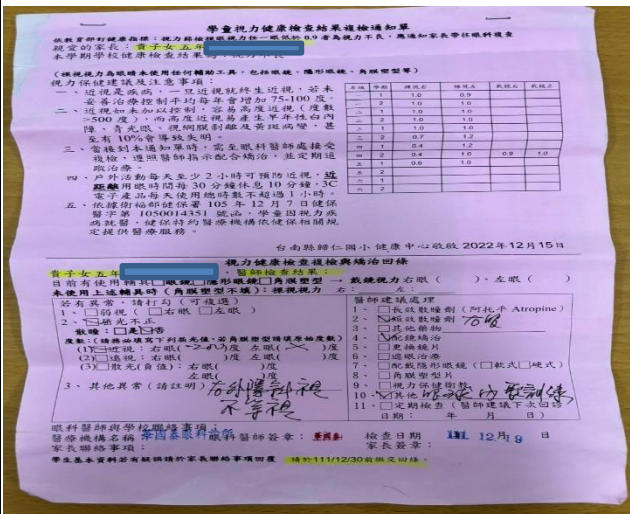 學童視力健康檢查結果複檢通知單
依教育部訂健康指標：視力篩檢裸眼視力任一眼低於0.9者為視力不良，應通知家長帶往眼科複查
親愛的家長：貴子女 五年
本學期學校健康檢查結果為：視力不良
(裸視視力為眼睛未使用任何輔助工具，包括眼鏡、隱形眼鏡、角膜塑型等)
視力保健建議及注意事項：
一、近視是疾病，一旦近視就終生近視，若未
妥善治療控制平均每年會增加75-100度。
二、近視如未加以控制，容易高度近視（度數
>500度），而高度近視易產生早年性白內
障、青光眼、視網膜剝離及黃斑病變，甚
至有10%會導致失明。
三、當接到本通知單時，需至眼科醫師處接受
複檢，遵照醫師指示配合矯治，並定期追
蹤治療。
四、戶外活動每天至少2小時可預防近視，近
距離用眼時間每30分鐘休息10分鐘，3C
電子產品每天使用總時數不超過1小時。
五、依據衛福部健保署105年12月7日健保
醫字第1050014351號函，學童因視力疾
病就醫，健保特約醫療機構依健保相關規
定提供醫療服務。
年級 學期 裸視右 裸視左 戴視右 戴視左
一 1 1.0 0.9
一 2 1.0 1.0
二 1 1.0 1.0
二 2 1.0 1.0
三 1 1.0 1.0
三 2 0.7 1.2
四 1 0.4 1.2
四 2 0.4 1.0 0.9 1.0
五 1 0.6 1.0
五 2
六 1
六 2
台南縣歸仁國小健康中心敬啟 2022年12月15日
視力健康檢查複檢與矯治回條
貴子女 五年 ，醫師檢查結果：
目前有使用輔具□眼鏡□隱形眼鏡□角膜塑型 → 戴鏡視力右眼（ ）、左眼（ ）
未使用上述輔具時（角膜塑型不填）：裸視視力 右： 左：
若有異常，請打勾（可複選）
1、□弱視（□右眼□左眼）
2、☑屈光不正
散瞳：□是☑否
度數：（請務必填寫下列屈光值，若角膜塑型請填原始度數）
(1)☑近視：右眼( )度 左眼( )度
(2)□遠視：右眼( )度 左眼( )度
(3)□散光(負值)：右眼( )度
左眼( )度
3、其他異常（請註明）右外隱斜視
不等視
醫師建議處理
1、□長效散瞳劑（阿托平 Atropine）
2、☑短效散瞳劑 右眼
3、□其他藥物
4、☑配鏡矯治
5、□更換鏡片
6、□遮眼治療
7、□配戴隱形眼鏡（□軟式□硬式）
8、□角膜塑型片
9、□視力保健衛教
10、☑其他
11、□定期檢查（醫師建議下次回診
日期： 年 月 日）
眼科醫師與學校聯絡事項：
醫療機構名稱 眼科醫師簽章： 檢查日期 111 12月19日
家長聯絡事項： 家長簽章：
學生基本資料若有疑誤請於家長聯絡事項回覆 請於111/12/30前繳交回條。